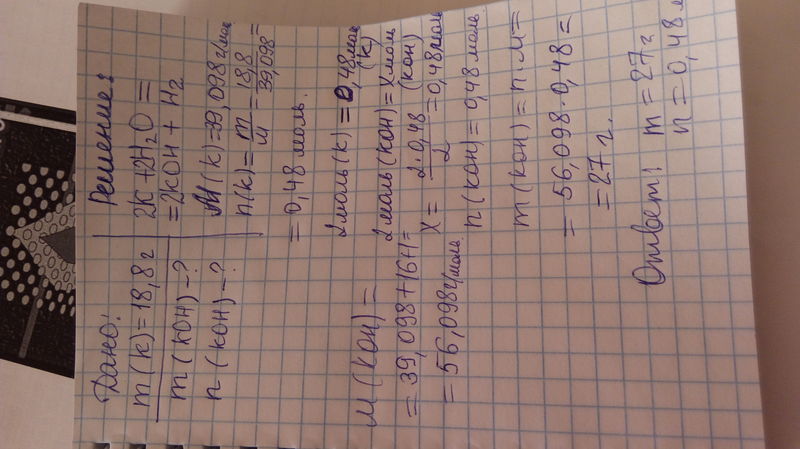 Дано:
m(K)=18,8г
m(KOH)-?
n(KOH)-?
Решение:
2K+2H₂O=
=2KOH+H₂
M(K)=39,098г/моль
n(K)=m/M=18,8/39,098
=0,48 моль.
2моль(K)=0,48моль(K)
2моль(KOH)=Xмоль(KOH)
X=2·0,48/2=0,48моль
n(KOH)=0,48моль.
M(KOH)=
=39,098+16+1=
=56,098г/моль.
m(KOH)=n·M=
=56,098·0,48=
=27г.
Ответ: m=27г
n=0,48